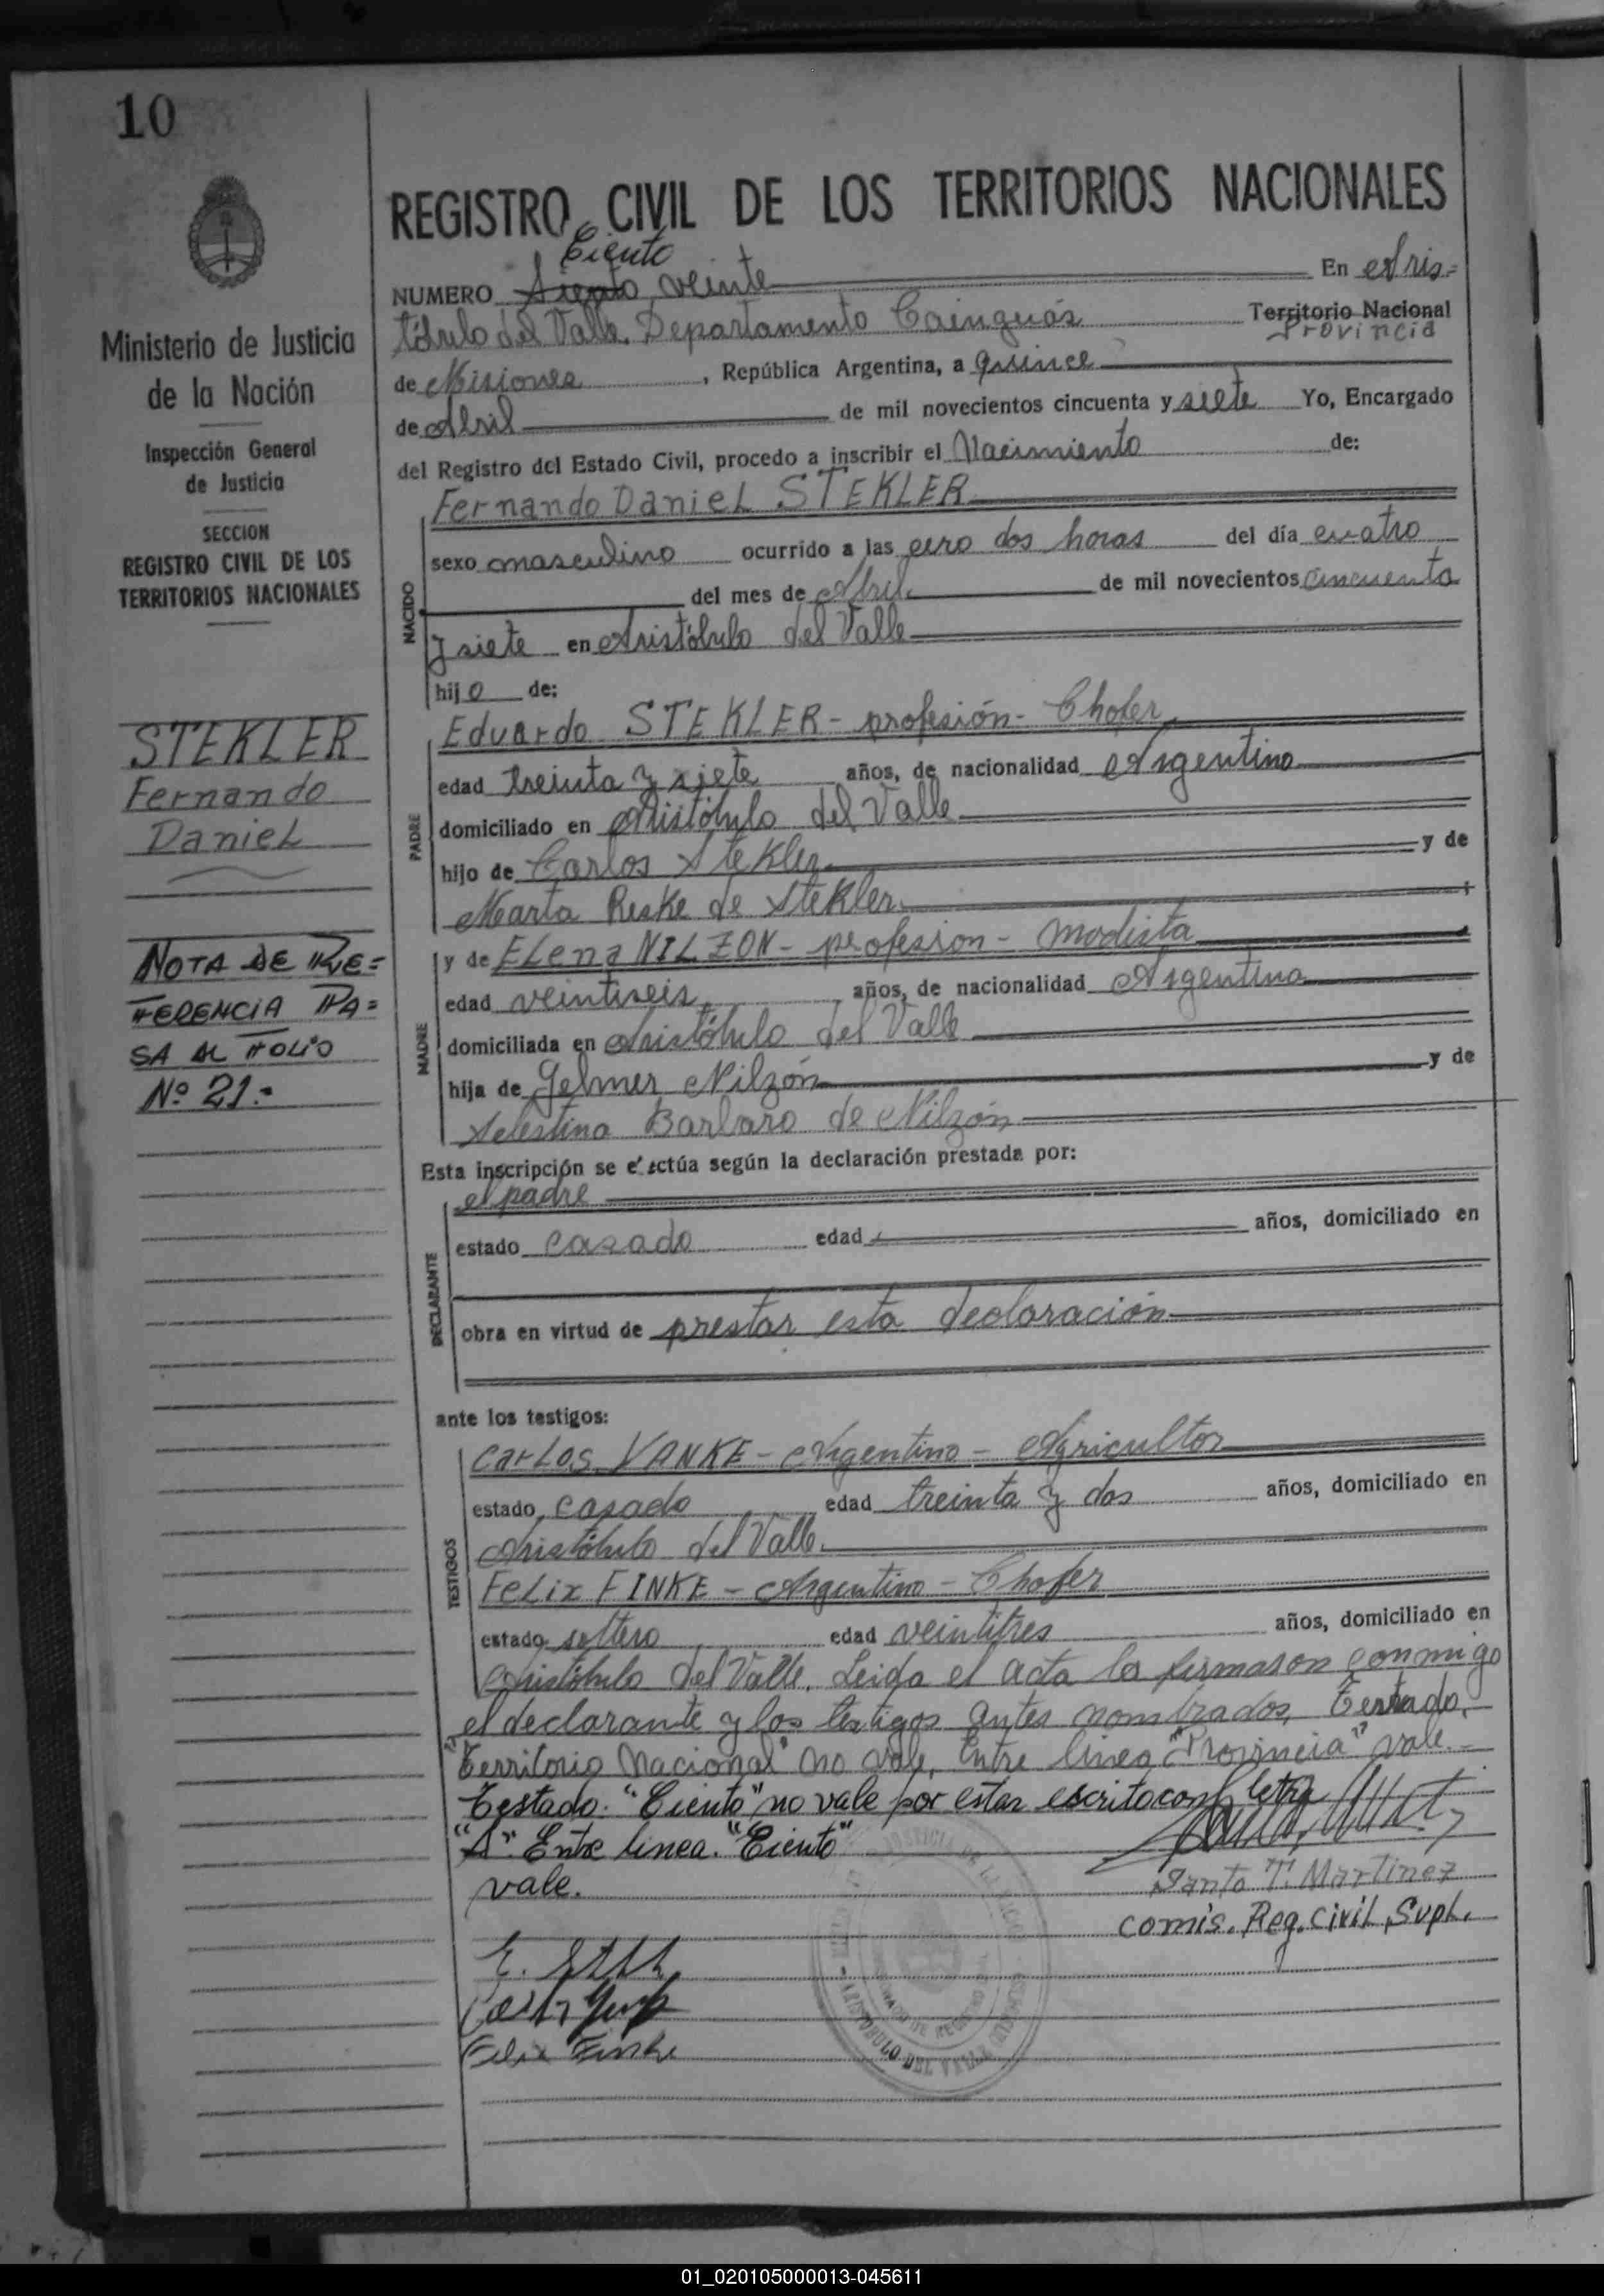 10
Ministerio de Justicia
de la Nación
Inspección General
de Justicia
SECCION
REGISTRO CIVIL DE LOS
TERRITORIOS NACIONALES
STEKLER
Fernando
Daniel
NOTA DE RE=
FERENCIA PA=
SA AL FOLIO
Nº 21.-
REGISTRO CIVIL DE LOS TERRITORIOS NACIONALES
Ciento
NUMERO Siento veinte En Aris=
tóbulo del Valle. Departamento Cainguás Territorio Nacional
Provincia
de Misiones, República Argentina, a quince
de Abril de mil novecientos cincuenta y siete Yo, Encargado
del Registro del Estado Civil, procedo a inscribir el Nacimiento de:
NACIDO
Fernando Daniel STEKLER
sexo masculino ocurrido a las cero dos horas del día cuatro
del mes de Abril de mil novecientos cincuenta
y siete en Aristóbulo del Valle
hijo de:
PADRE
Eduardo STEKLER - profesión - Chofer
edad treinta y siete años, de nacionalidad Argentino
domiciliado en Aristóbulo del Valle
hijo de Carlos Stekler y de
Marta Reske de Stekler ;
MADRE
y de Elena NILZON - profesion - Modista
edad veintiseis años, de nacionalidad Argentina
domiciliada en Aristóbulo del Valle
hija de Gelmer Nilzón y de
Selestina Barbaro de Nilzón
Esta inscripción se efectúa según la declaración prestada por:
DECLARANTE
el padre
estado casado edad años, domiciliado en
obra en virtud de prestar esta declaración
ante los testigos:
TESTIGOS
Carlos YANKE - Argentino - Agricultor
estado casado edad treinta y dos años, domiciliado en
Aristóbulo del Valle.
Felix FINKE - Argentino - Chofer
estado soltero edad veintitres años, domiciliado en
Aristóbulo del Valle. Leida el acta la firmaron conmigo
el declarante y los testigos antes nombrados, Testado,
"Territorio Nacional" no vale, Entre linea "Provincia" vale.-
Testado: "Ciento" no vale por estar escrito con letra
"S". Entre linea. "Ciento"
vale.
Santo T. Martinez
Comis. Reg. Civil, Supl.
Felix Finke
ARISTOBULO DEL VALLE
01_020105000013-045611